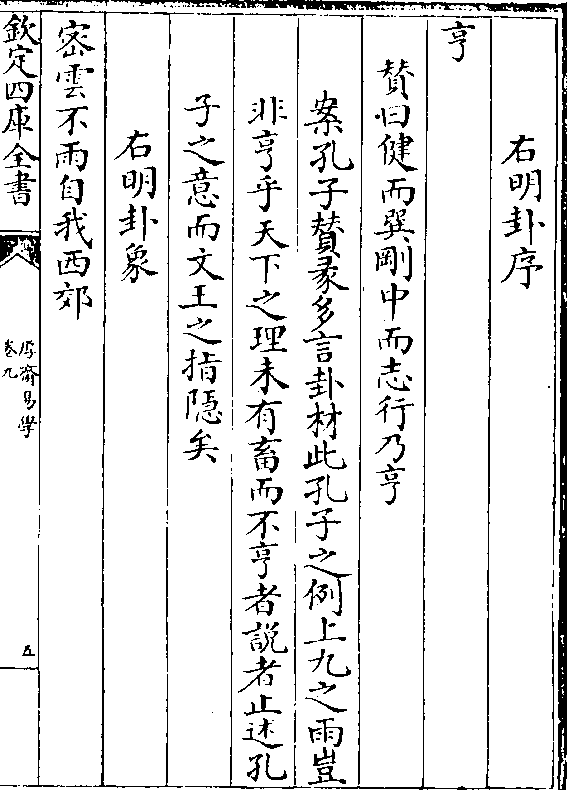 右明卦序
亨
賛曰健而巽剛中而志行乃亨
案孔子賛彖多言卦材此孔子之例上九之雨豈
非亨乎天下之理未有畜而不亨者説者止述孔
子之意而文王之指隠矣
右明卦象
密雲不雨自我西郊
欽定四庫全書
厚齋易學
卷九
五